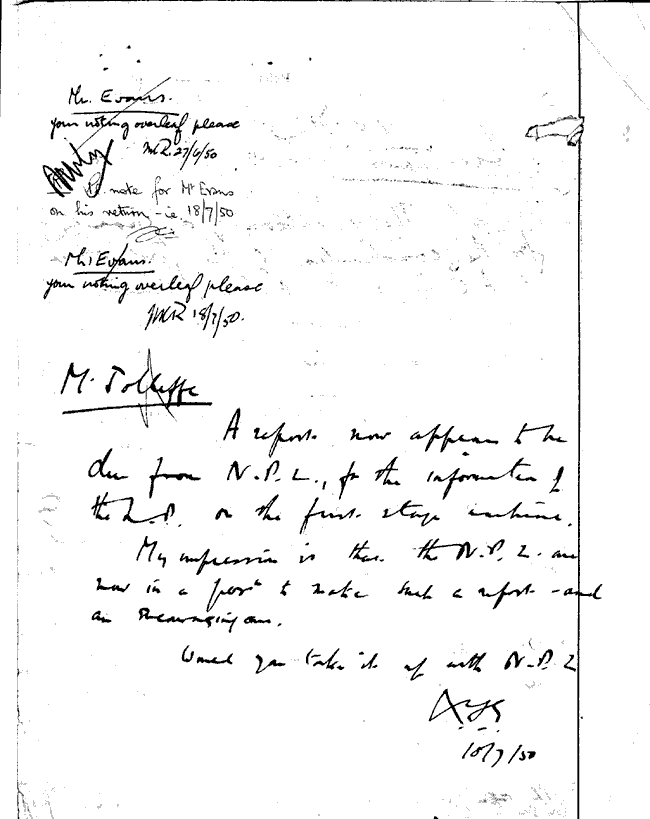 Mr. Evans.
your noting overleaf please
MR. 27/6/50
note for Mr Evans
on his return - ie. 18/7/50
Mr. Evans.
your noting overleaf please
18/7/50.
Mr.
A report now appears to be
due from N.P.L., for the information of
the on the first stage machine.
My impression is that the N.P.L. are
now in a posn to make such a report - and
an encouraging one.
Would you take it up with N.P.L
/7/50